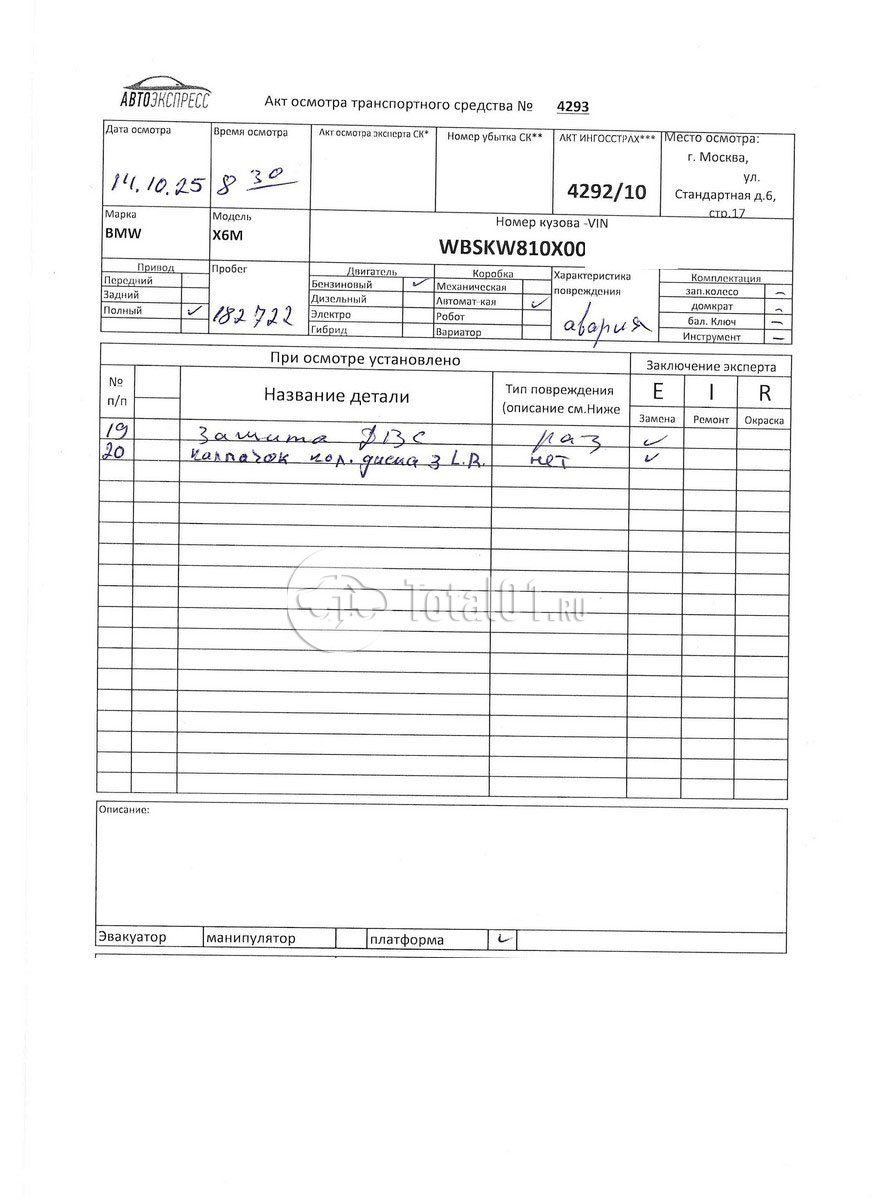 АВТОЭКСПРЕСС
Акт осмотра транспортного средства № 4293
Дата осмотра
14.10.25
Время осмотра
8 30
Акт осмотра эксперта СК*
Номер убытка СК**
АКТ ИНГОССТРАХ***
4292/10
Место осмотра:
г. Москва,
ул.
Стандартная д.6,
стр.17
Марка
BMW
Модель
X6M
Номер кузова -VIN
WBSKW810X00
Привод
Передний
Задний
Полный ✓
Пробег
182722
Двигатель
Бензиновый ✓
Дизельный
Электро
Гибрид
Коробка
Механическая
Автомат-кая ✓
Робот
Вариатор
Характеристика
повреждения
авария
Комплектация
зап.колесо –
домкрат –
бал. Ключ –
Инструмент –
При осмотре установлено
Заключение эксперта
№
п/п
Название детали
Тип повреждения
(описание см.Ниже
E I R
Замена Ремонт Окраска
19 Защита ДВС раз ✓
20 колпачок кол. диска з L.R. нет ✓
Total01.RU
Описание:
Эвакуатор манипулятор платформа ✓